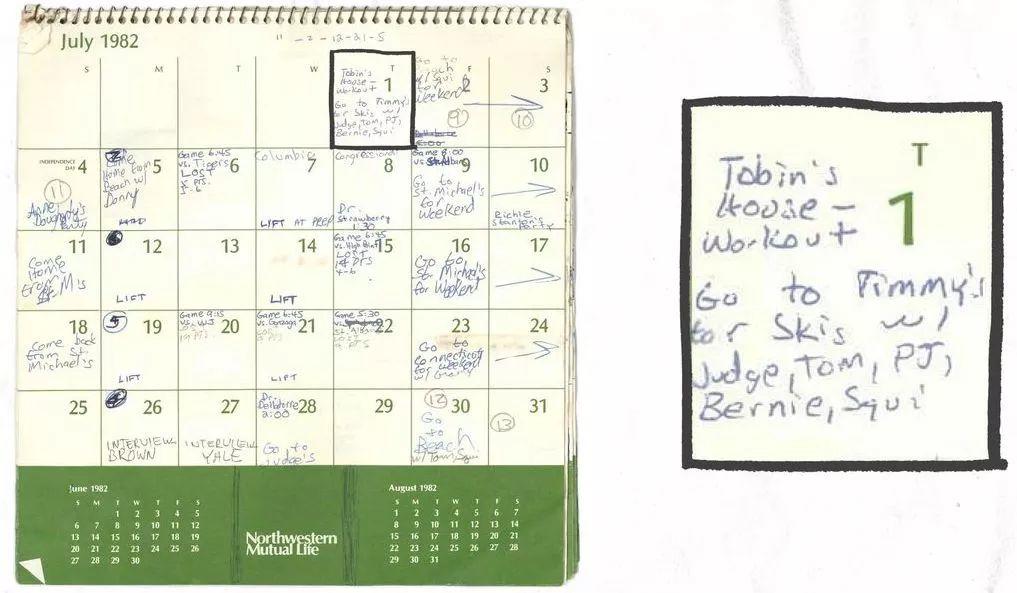 July 1982
S M T W T F S
Tobin's
House –
Workout
Go to Timmy's
for Skis w/
Judge, Tom, PJ,
Bernie, Squi
1
Go to
w/ Squi
for
Weekend
2
9
3
10
INDEPENDENCE
DAY 4
11
Anne
Dougherty's
Party
5
Come
Home from
Beach w/
Donny
Game 6:45
vs. Tigers
LOST
5 pts.
6
Columbia
7
LIFT AT PREP
Congressional
8
Dr.
Strawberry
1:30
Game 8:00
vs.
9
Go to
St. Michael's
for
Weekend
10
Richie
Stanton's
Party
11
Come
Home
from
St. M's
12
LIFT
13
14
LIFT
Game 6:45
vs. High Point
LOST
14 pts
15
16
Go to
St. Michael's
for Weekend
17
18
Come back
from St.
Michael's
5
19
LIFT
Game 9:15
20
Game 6:45
vs. Gonzaga
21
LIFT
Game 5:30
22
23
Go to
Connecticut
for weekend
w/ Garry
24
25
26
INTERVIEW
BROWN
27
INTERVIEW
YALE
Dr.
28
2:00
Go to
Judge's
29
12
30
Go
to
Beach
w/ Tom, Squi
31
13
June 1982
S M T W T F S
1 2 3 4 5
6 7 8 9 10 11 12
13 14 15 16 17 18 19
20 21 22 23 24 25 26
27 28 29 30
Northwestern
Mutual Life
August 1982
S M T W T F S
1 2 3 4 5 6 7
8 9 10 11 12 13 14
15 16 17 18 19 20 21
22 23 24 25 26 27 28
29 30 31
T
1
Tobin's
House –
Workout
Go to Timmy's
for Skis w/
Judge, Tom, PJ,
Bernie, Squi